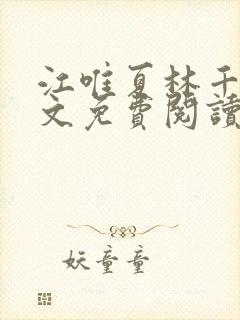 江唯夏林千
文免費閱讀
妖童童